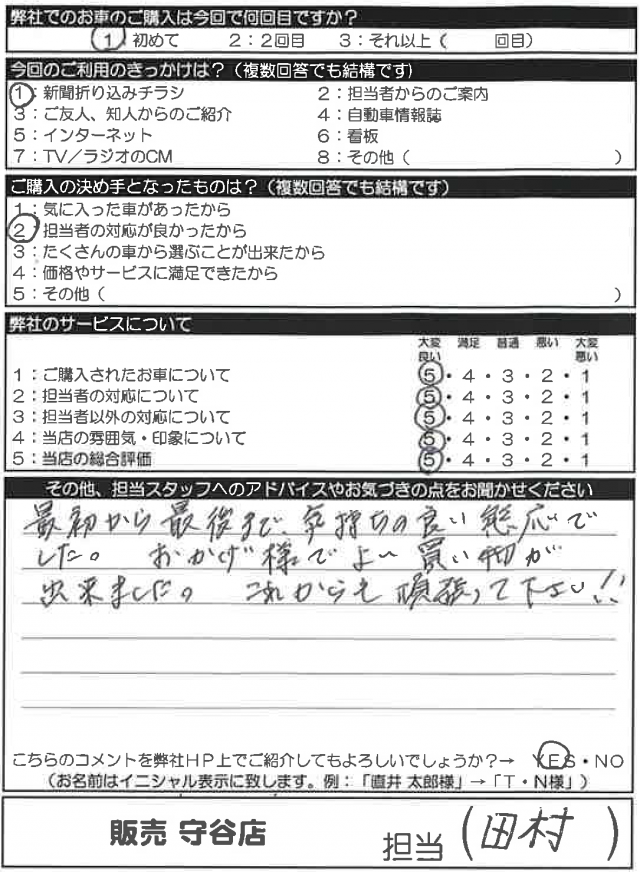 弊社でのお車のご購入は今回で何回目ですか？
1：初めて　2：2回目　3：それ以上（　　回目）
今回のご利用のきっかけは？（複数回答でも結構です）
1：新聞折り込みチラシ　2：担当者からのご案内
3：ご友人、知人からのご紹介　4：自動車情報誌
5：インターネット　6：看板
7：TV／ラジオのCM　8：その他（　　）
ご購入の決め手となったものは？（複数回答でも結構です）
1：気に入った車があったから
2：担当者の対応が良かったから
3：たくさんの車から選ぶことが出来たから
4：価格やサービスに満足できたから
5：その他（　　）
弊社のサービスについて
大変良い　満足　普通　悪い　大変悪い
1：ご購入されたお車について　5・4・3・2・1
2：担当者の対応について　5・4・3・2・1
3：担当者以外の対応について　5・4・3・2・1
4：当店の雰囲気・印象について　5・4・3・2・1
5：当店の総合評価　5・4・3・2・1
その他、担当スタッフへのアドバイスやお気づきの点をお聞かせください
最初から最後まで、気持ちの良い態応で
した。 おかげ様でよい買い物が
出来ました。 これからも頑張って下さい!!
こちらのコメントを弊社HP上でご紹介してもよろしいでしょうか？→　YES・NO
（お名前はイニシャル表示に致します。例：「直井 太郎様」→「T・N様」）
販売 守谷店　担当（田村）